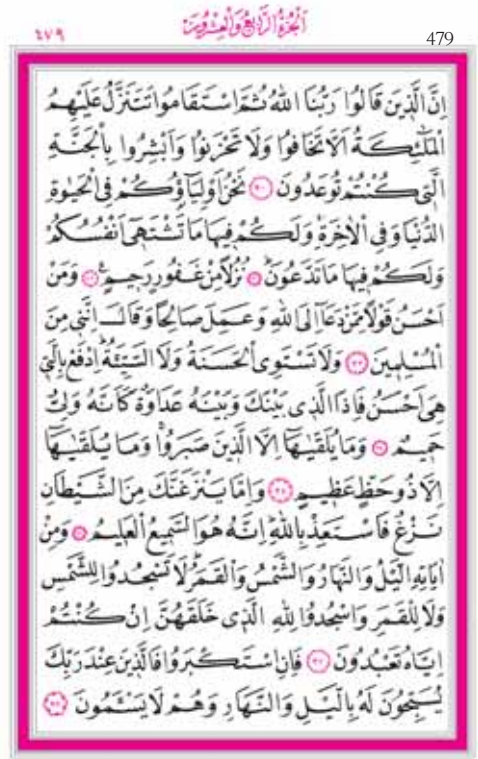 ٤٧٩ اَلْجُزْءُ الرَّابِعُ وَالْعِشْرُونَ 479
اِنَّ الَّذ۪ينَ قَالُوا رَبُّنَا اللّٰهُ ثُمَّ اسْتَقَامُوا تَتَنَزَّلُ عَلَيْهِمُ
الْمَلٰٓئِكَةُ اَلَّا تَخَافُوا وَلَا تَحْزَنُوا وَاَبْشِرُوا بِالْجَنَّةِ
الَّت۪ي كُنْتُمْ تُوعَدُونَ ﴿٣٠﴾ نَحْنُ اَوْلِيَٓاؤُ۬كُمْ فِي الْحَيٰوةِ
الدُّنْيَا وَفِي الْاٰخِرَةِۚ وَلَكُمْ ف۪يهَا مَا تَشْتَه۪ٓي اَنْفُسُكُمْ
وَلَكُمْ ف۪يهَا مَا تَدَّعُونَۜ ﴿٣١﴾ نُزُلًا مِنْ غَفُورٍ رَح۪يمٍ۟ ﴿٣٢﴾ وَمَنْ
اَحْسَنُ قَوْلًا مِمَّنْ دَعَٓا اِلَى اللّٰهِ وَعَمِلَ صَالِحًا وَقَالَ اِنَّن۪ي مِنَ
الْمُسْلِم۪ينَ ﴿٣٣﴾ وَلَا تَسْتَوِي الْحَسَنَةُ وَلَا السَّيِّئَةُۜ اِدْفَعْ بِالَّت۪ي
هِيَ اَحْسَنُ فَاِذَا الَّذ۪ي بَيْنَكَ وَبَيْنَهُ عَدَاوَةٌ كَاَنَّهُ وَلِيٌّ
حَم۪يمٌ ﴿٣٤﴾ وَمَا يُلَقّٰيهَٓا اِلَّا الَّذ۪ينَ صَبَرُواۚ وَمَا يُلَقّٰيهَٓا
اِلَّا ذُو حَظٍّ عَظ۪يمٍ ﴿٣٥﴾ وَاِمَّا يَنْزَغَنَّكَ مِنَ الشَّيْطَانِ
نَزْغٌ فَاسْتَعِذْ بِاللّٰهِۜ اِنَّهُ هُوَ السَّم۪يعُ الْعَل۪يمُ ﴿٣٦﴾ وَمِنْ
اٰيَاتِهِ الَّيْلُ وَالنَّهَارُ وَالشَّمْسُ وَالْقَمَرُۜ لَا تَسْجُدُوا لِلشَّمْسِ
وَلَا لِلْقَمَرِ وَاسْجُدُوا لِلّٰهِ الَّذ۪ي خَلَقَهُنَّ اِنْ كُنْتُمْ
اِيَّاهُ تَعْبُدُونَ ﴿٣٧﴾ فَاِنِ اسْتَكْبَرُوا فَالَّذ۪ينَ عِنْدَ رَبِّكَ
يُسَبِّحُونَ لَهُ بِالَّيْلِ وَالنَّهَارِ وَهُمْ لَا يَسْـَٔمُونَ ﴿٣٨﴾